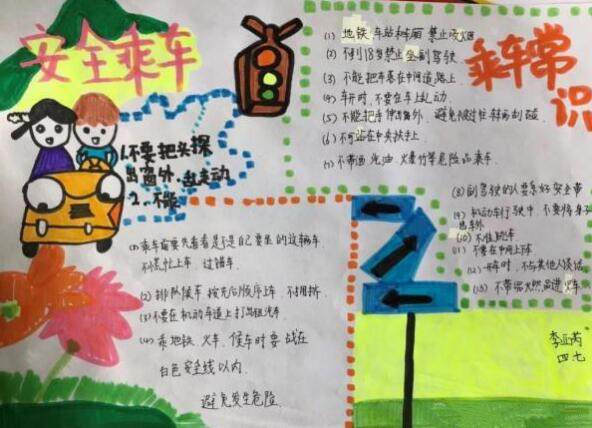 安全乘车
1.不要把头探
出窗外,乱走动
2.不能
(1)乘车前要先看看是不是自己要乘的这辆车.
上车,过错车.
(2)排队候车,按先后顺序上车,不拥挤.
(3)不要在机动车道上打出租汽车
(4)乘地铁、火车、候车时要站在
白色安全线以内.
避免发生危险.
乘车常识
(1)地铁、车站和车厢禁止吸烟
(2)不到18岁禁止坐副驾驶
(3)不能把车塞在中间道路上.
(4)车开时,不要在车上乱动.
(5)不能把手伸出窗外,避免被过往车辆刮碰
(6)不可站在中央扶手上
(7)不带酒、汽油、火爆竹等危险品乘车.
(8)副驾驶的人要系好安全带
(9)机动车行驶中,不要将身子
出车外
(10)不准跳车.
(11)不要在中间上下车.
(12)开车时,不与其他人谈话
(13)不带易火燃品进火车
李亚芮
四七